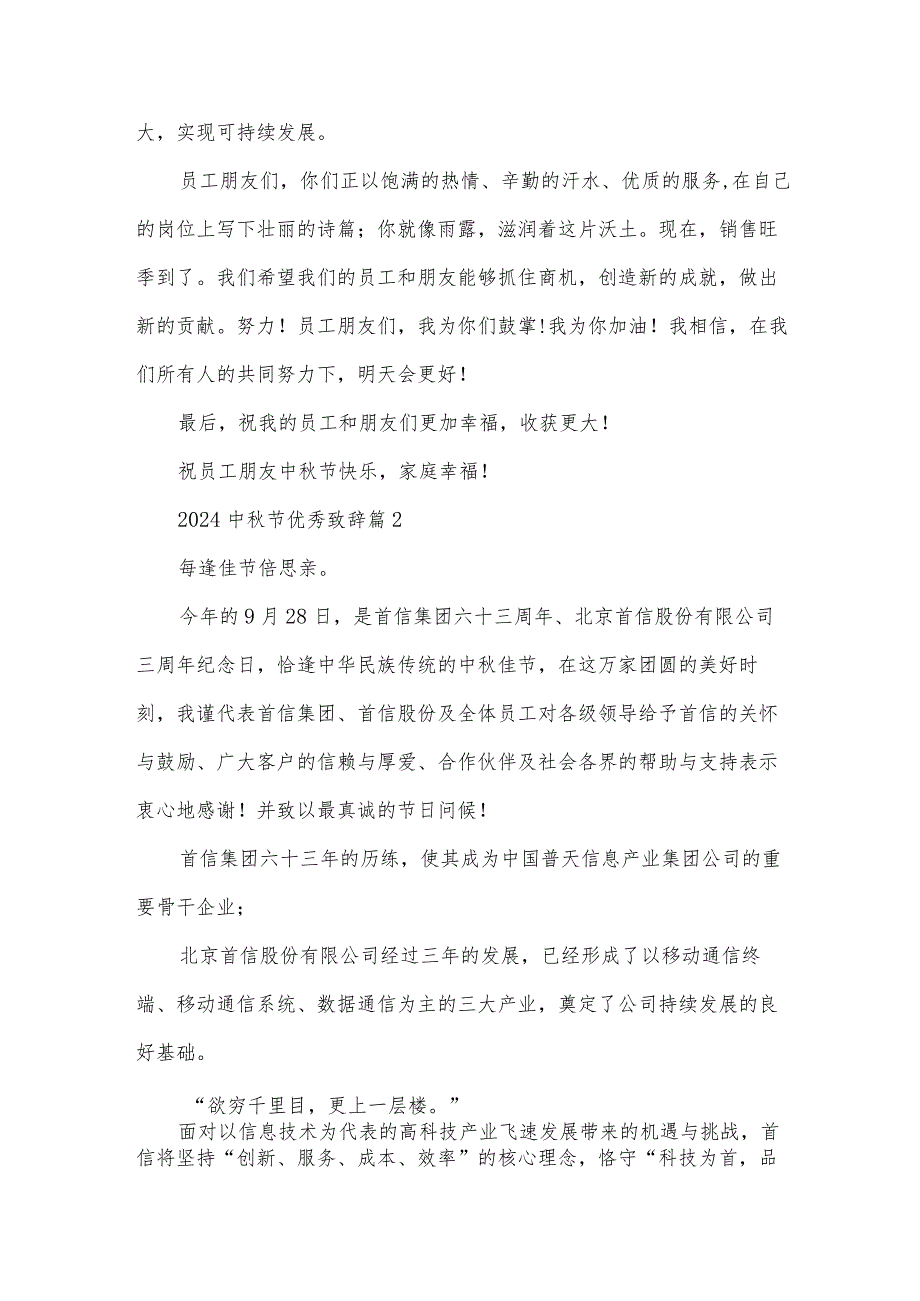 大，实现可持续发展。
员工朋友们，你们正以饱满的热情、辛勤的汗水、优质的服务,在自己
的岗位上写下壮丽的诗篇；你就像雨露，滋润着这片沃土。现在，销售旺
季到了。我们希望我们的员工和朋友能够抓住商机，创造新的成就，做出
新的贡献。努力！员工朋友们，我为你们鼓掌!我为你加油！我相信，在我
们所有人的共同努力下，明天会更好！
最后，祝我的员工和朋友们更加幸福，收获更大！
祝员工朋友中秋节快乐，家庭幸福！
2024中秋节优秀致辞篇2
每逢佳节倍思亲。
今年的9月28日，是首信集团六十三周年、北京首信股份有限公司
三周年纪念日，恰逢中华民族传统的中秋佳节，在这万家团圆的美好时
刻，我谨代表首信集团、首信股份及全体员工对各级领导给予首信的关怀
与鼓励、广大客户的信赖与厚爱、合作伙伴及社会各界的帮助与支持表示
衷心地感谢！并致以最真诚的节日问候！
首信集团六十三年的历练，使其成为中国普天信息产业集团公司的重
要骨干企业；
北京首信股份有限公司经过三年的发展，已经形成了以移动通信终
端、移动通信系统、数据通信为主的三大产业，奠定了公司持续发展的良
好基础。
“欲穷千里目，更上一层楼。”
面对以信息技术为代表的高科技产业飞速发展带来的机遇与挑战，首
信将坚持“创新、服务、成本、效率”的核心理念，恪守“科技为首，品